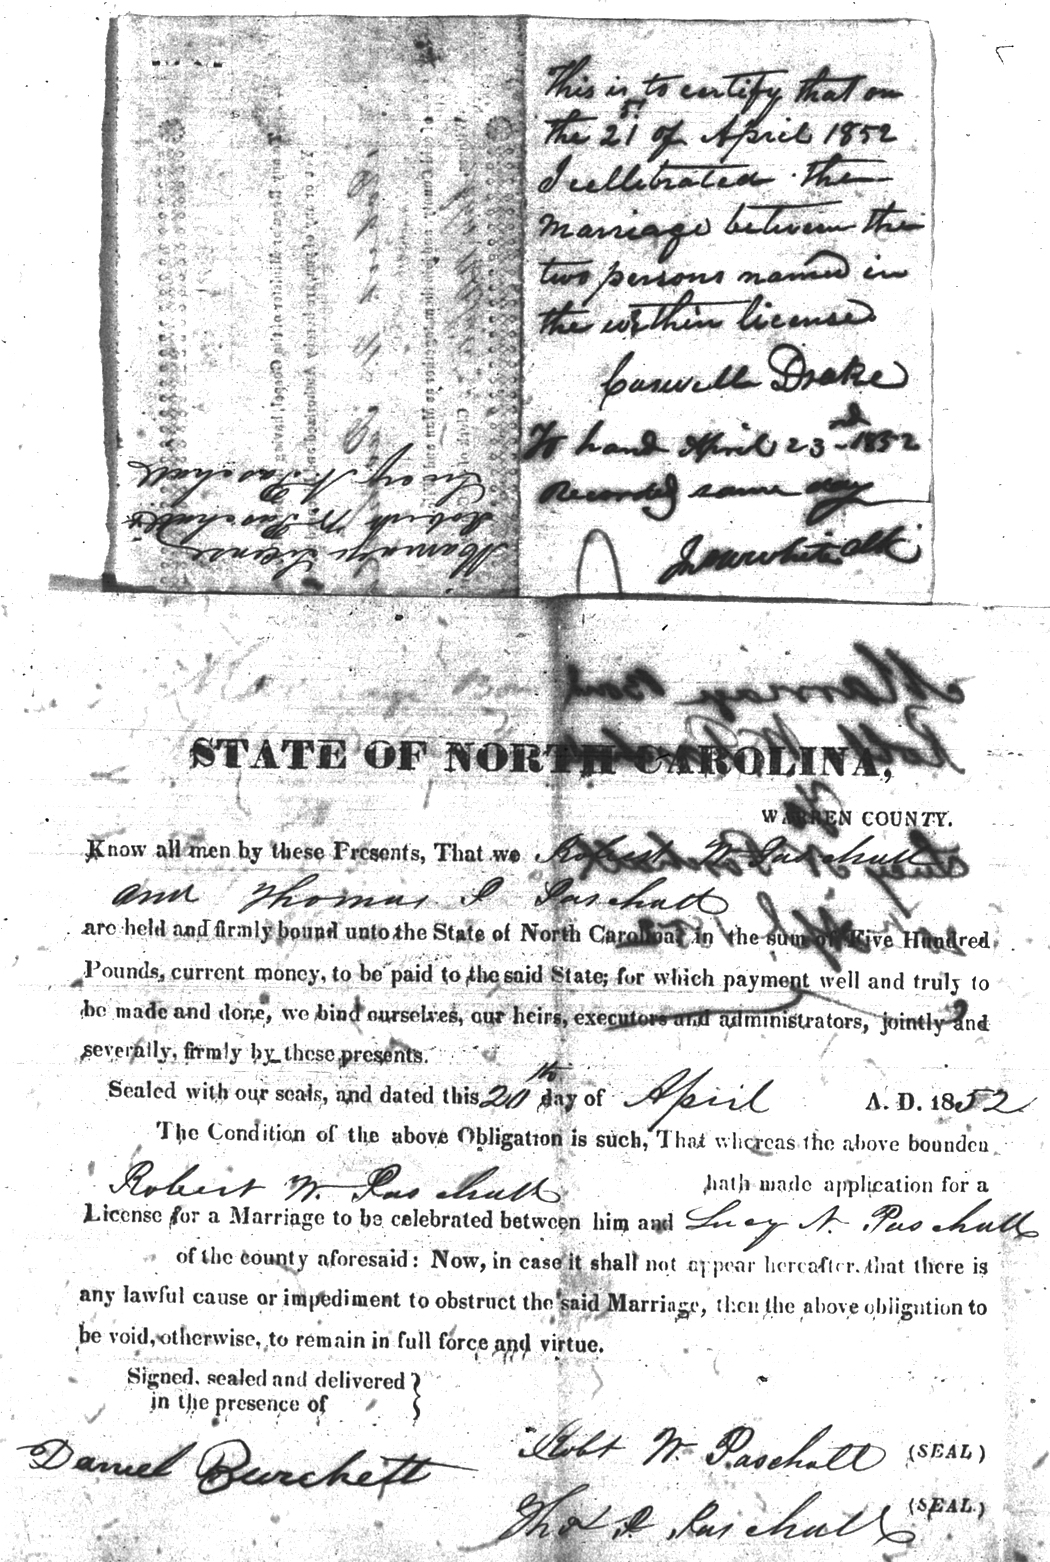 This is to certify that on
the 21st of April 1852
I cellebrated the
marriage between the
two persons named in
the within license
Caswell Drake
To hand April 23rd 1852
Recorded same day
Marriage License
Robert W. Paschall
Lucy N. Paschall
STATE OF NORTH CAROLINA,
WARREN COUNTY.
Know all men by these Presents, That we Robert W Paschall
and Thomas P Paschall
are held and firmly bound unto the State of North Carolina, in the sum of Five Hundred
Pounds, current money, to be paid to the said State; for which payment well and truly to
be made and done, we bind ourselves, our heirs, executors and administrators, jointly and
severally, firmly by these presents.
Sealed with our seals, and dated this 20th day of April A. D. 1852
The Condition of the above Obligation is such, That whereas the above bounden
Robert W. Paschall hath made application for a
License for a Marriage to be celebrated between him and Lucy N. Paschall
of the county aforesaid: Now, in case it shall not appear hereafter, that there is
any lawful cause or impediment to obstruct the said Marriage, then the above obligation to
be void, otherwise, to remain in full force and virtue.
Signed, sealed and delivered
in the presence of
Daniel Burchett
Robt W. Paschall (SEAL)
Thos P Paschall (SEAL)